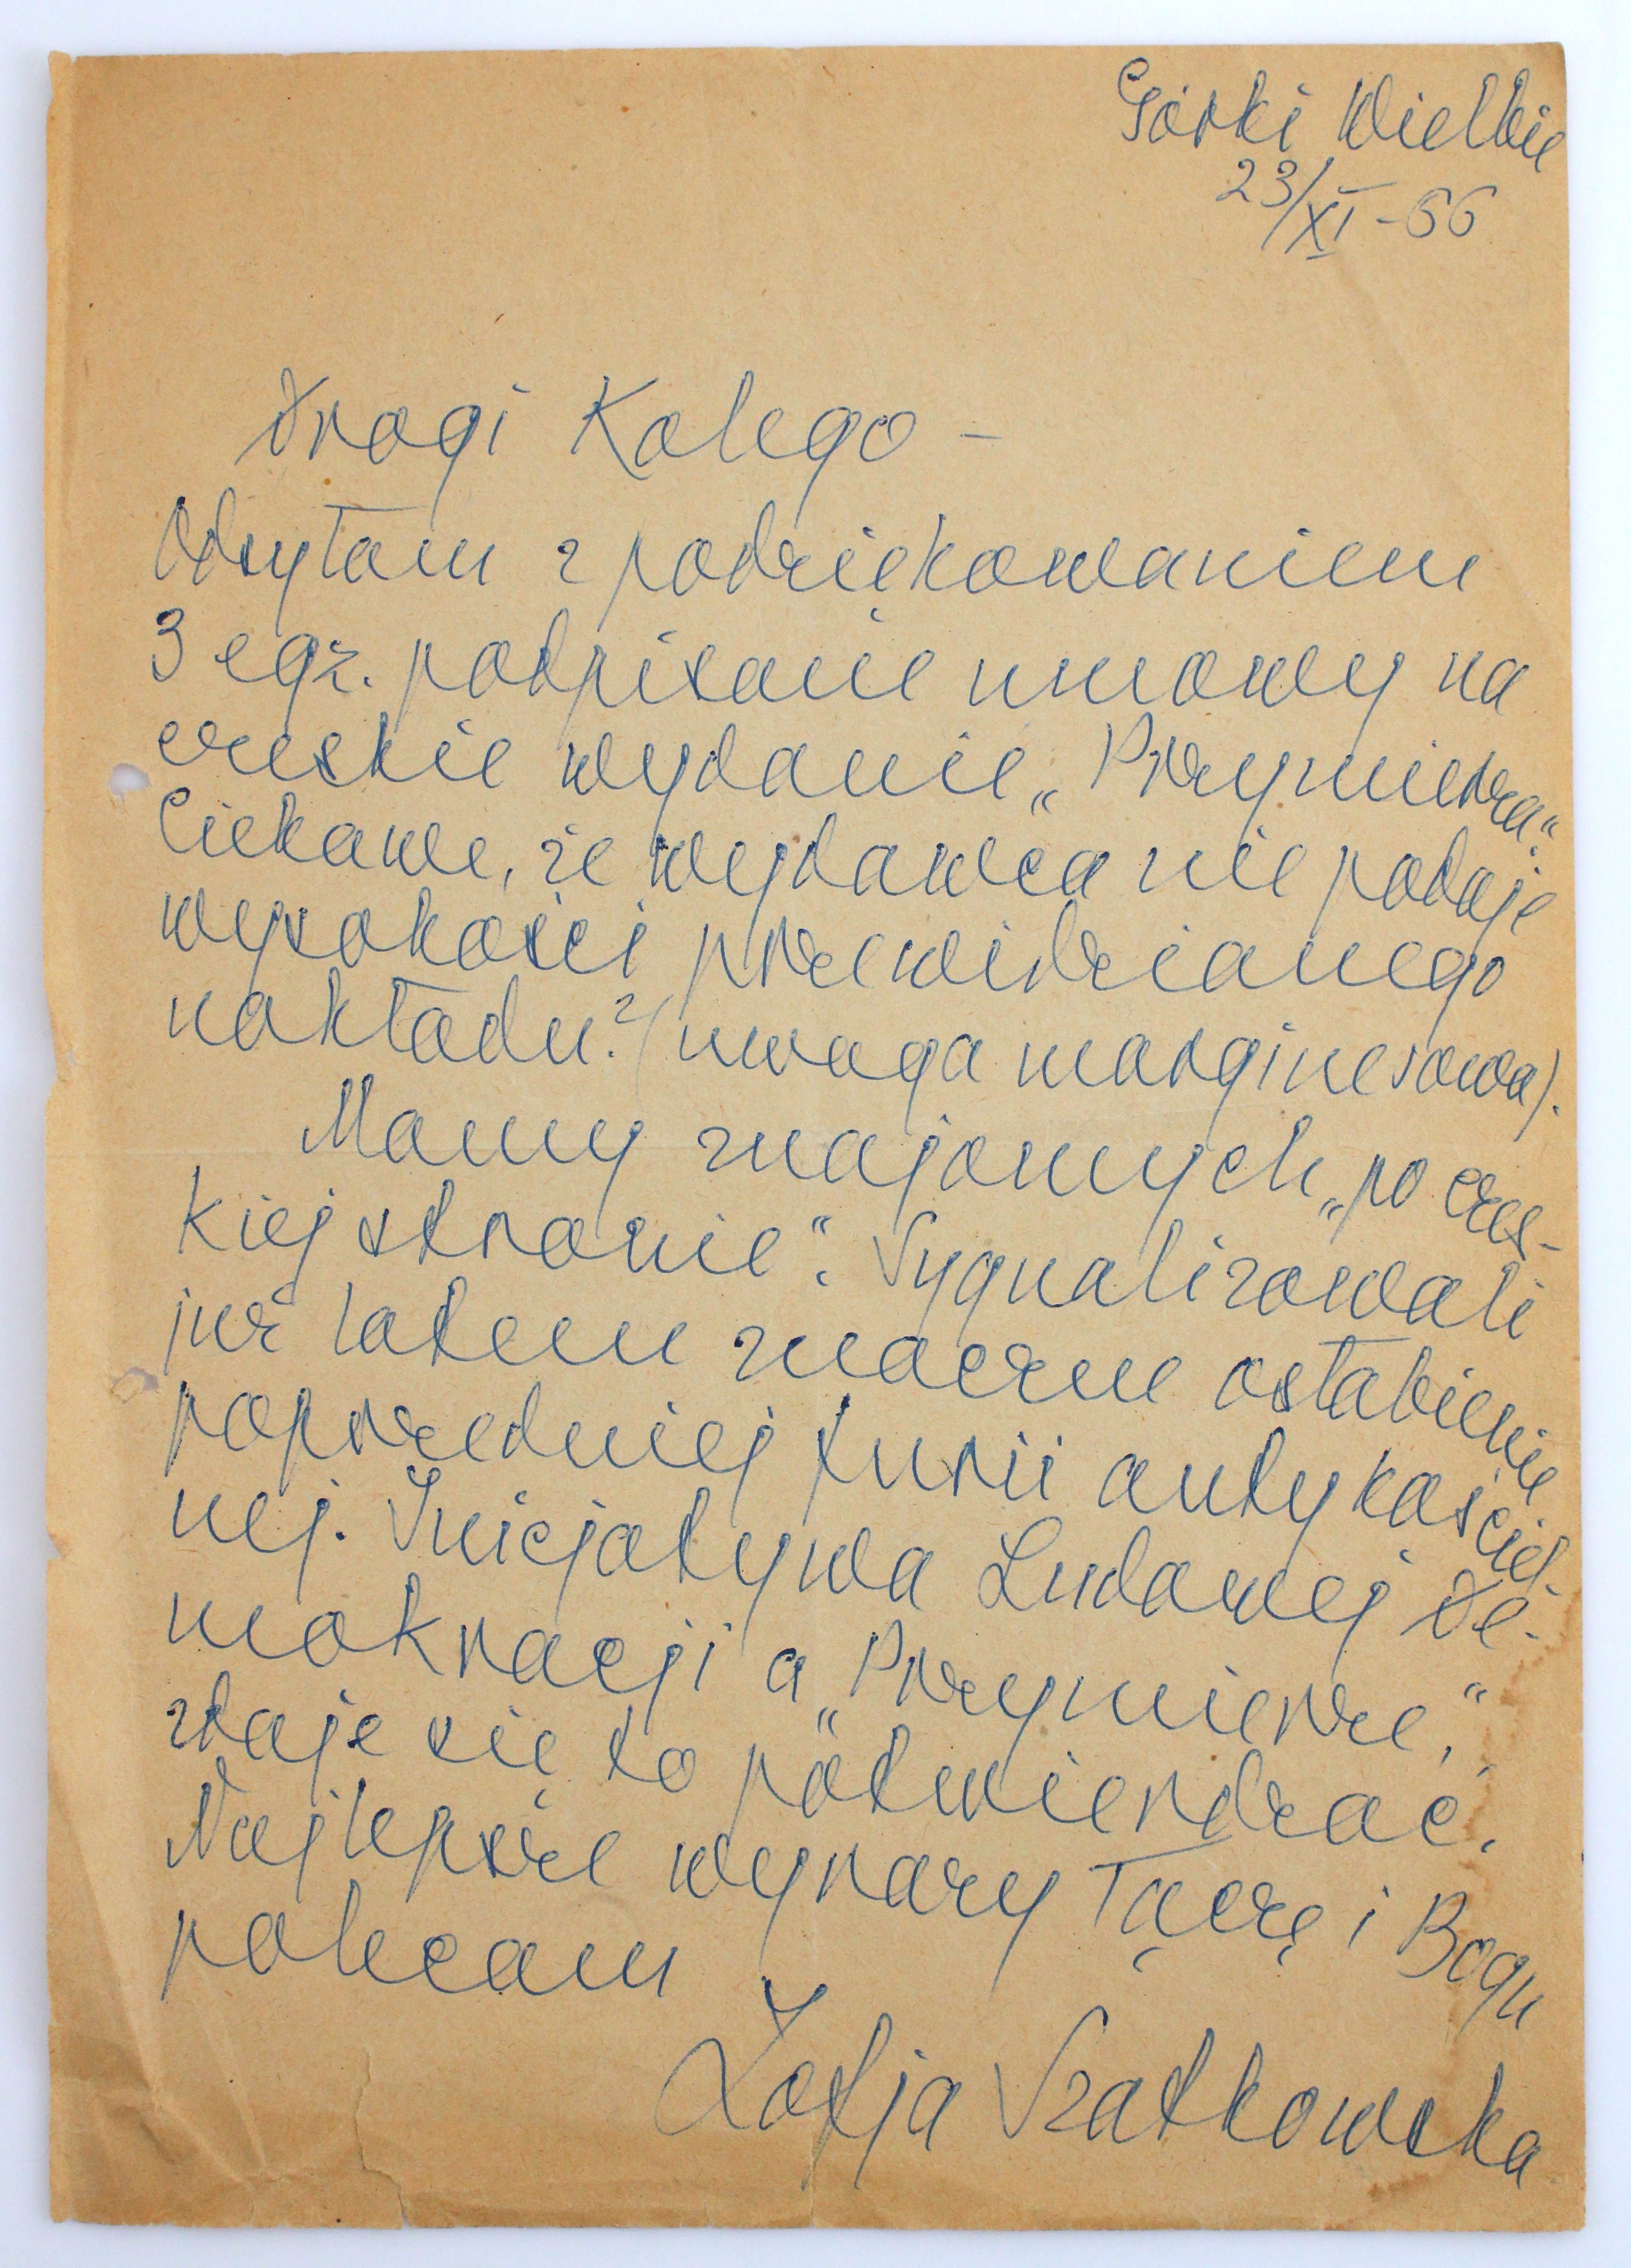 Górki Wielkie
23/XI-66
Drogi Kolego –
Odsyłam z podziękowaniem
3 egz. podpisane umowy na
czeskie wydanie „Przymierza".
Ciekawe, że wydawca nie podaje
wysokości przewidzianego
nakładu? (uwaga marginesowa).
Mamy znajomych „po czes-
kiej stronie". Sygnalizowali
już latem znaczne osłabienie
poprzedniej furii antykościel-
nej. Inicjatywa Ludowej De-
mokracji a „Przymierze",
zdaje się to potwierdzać.
Najlepsze wyrazy łączę i Bogu
polecam
Zofja Szatkowska